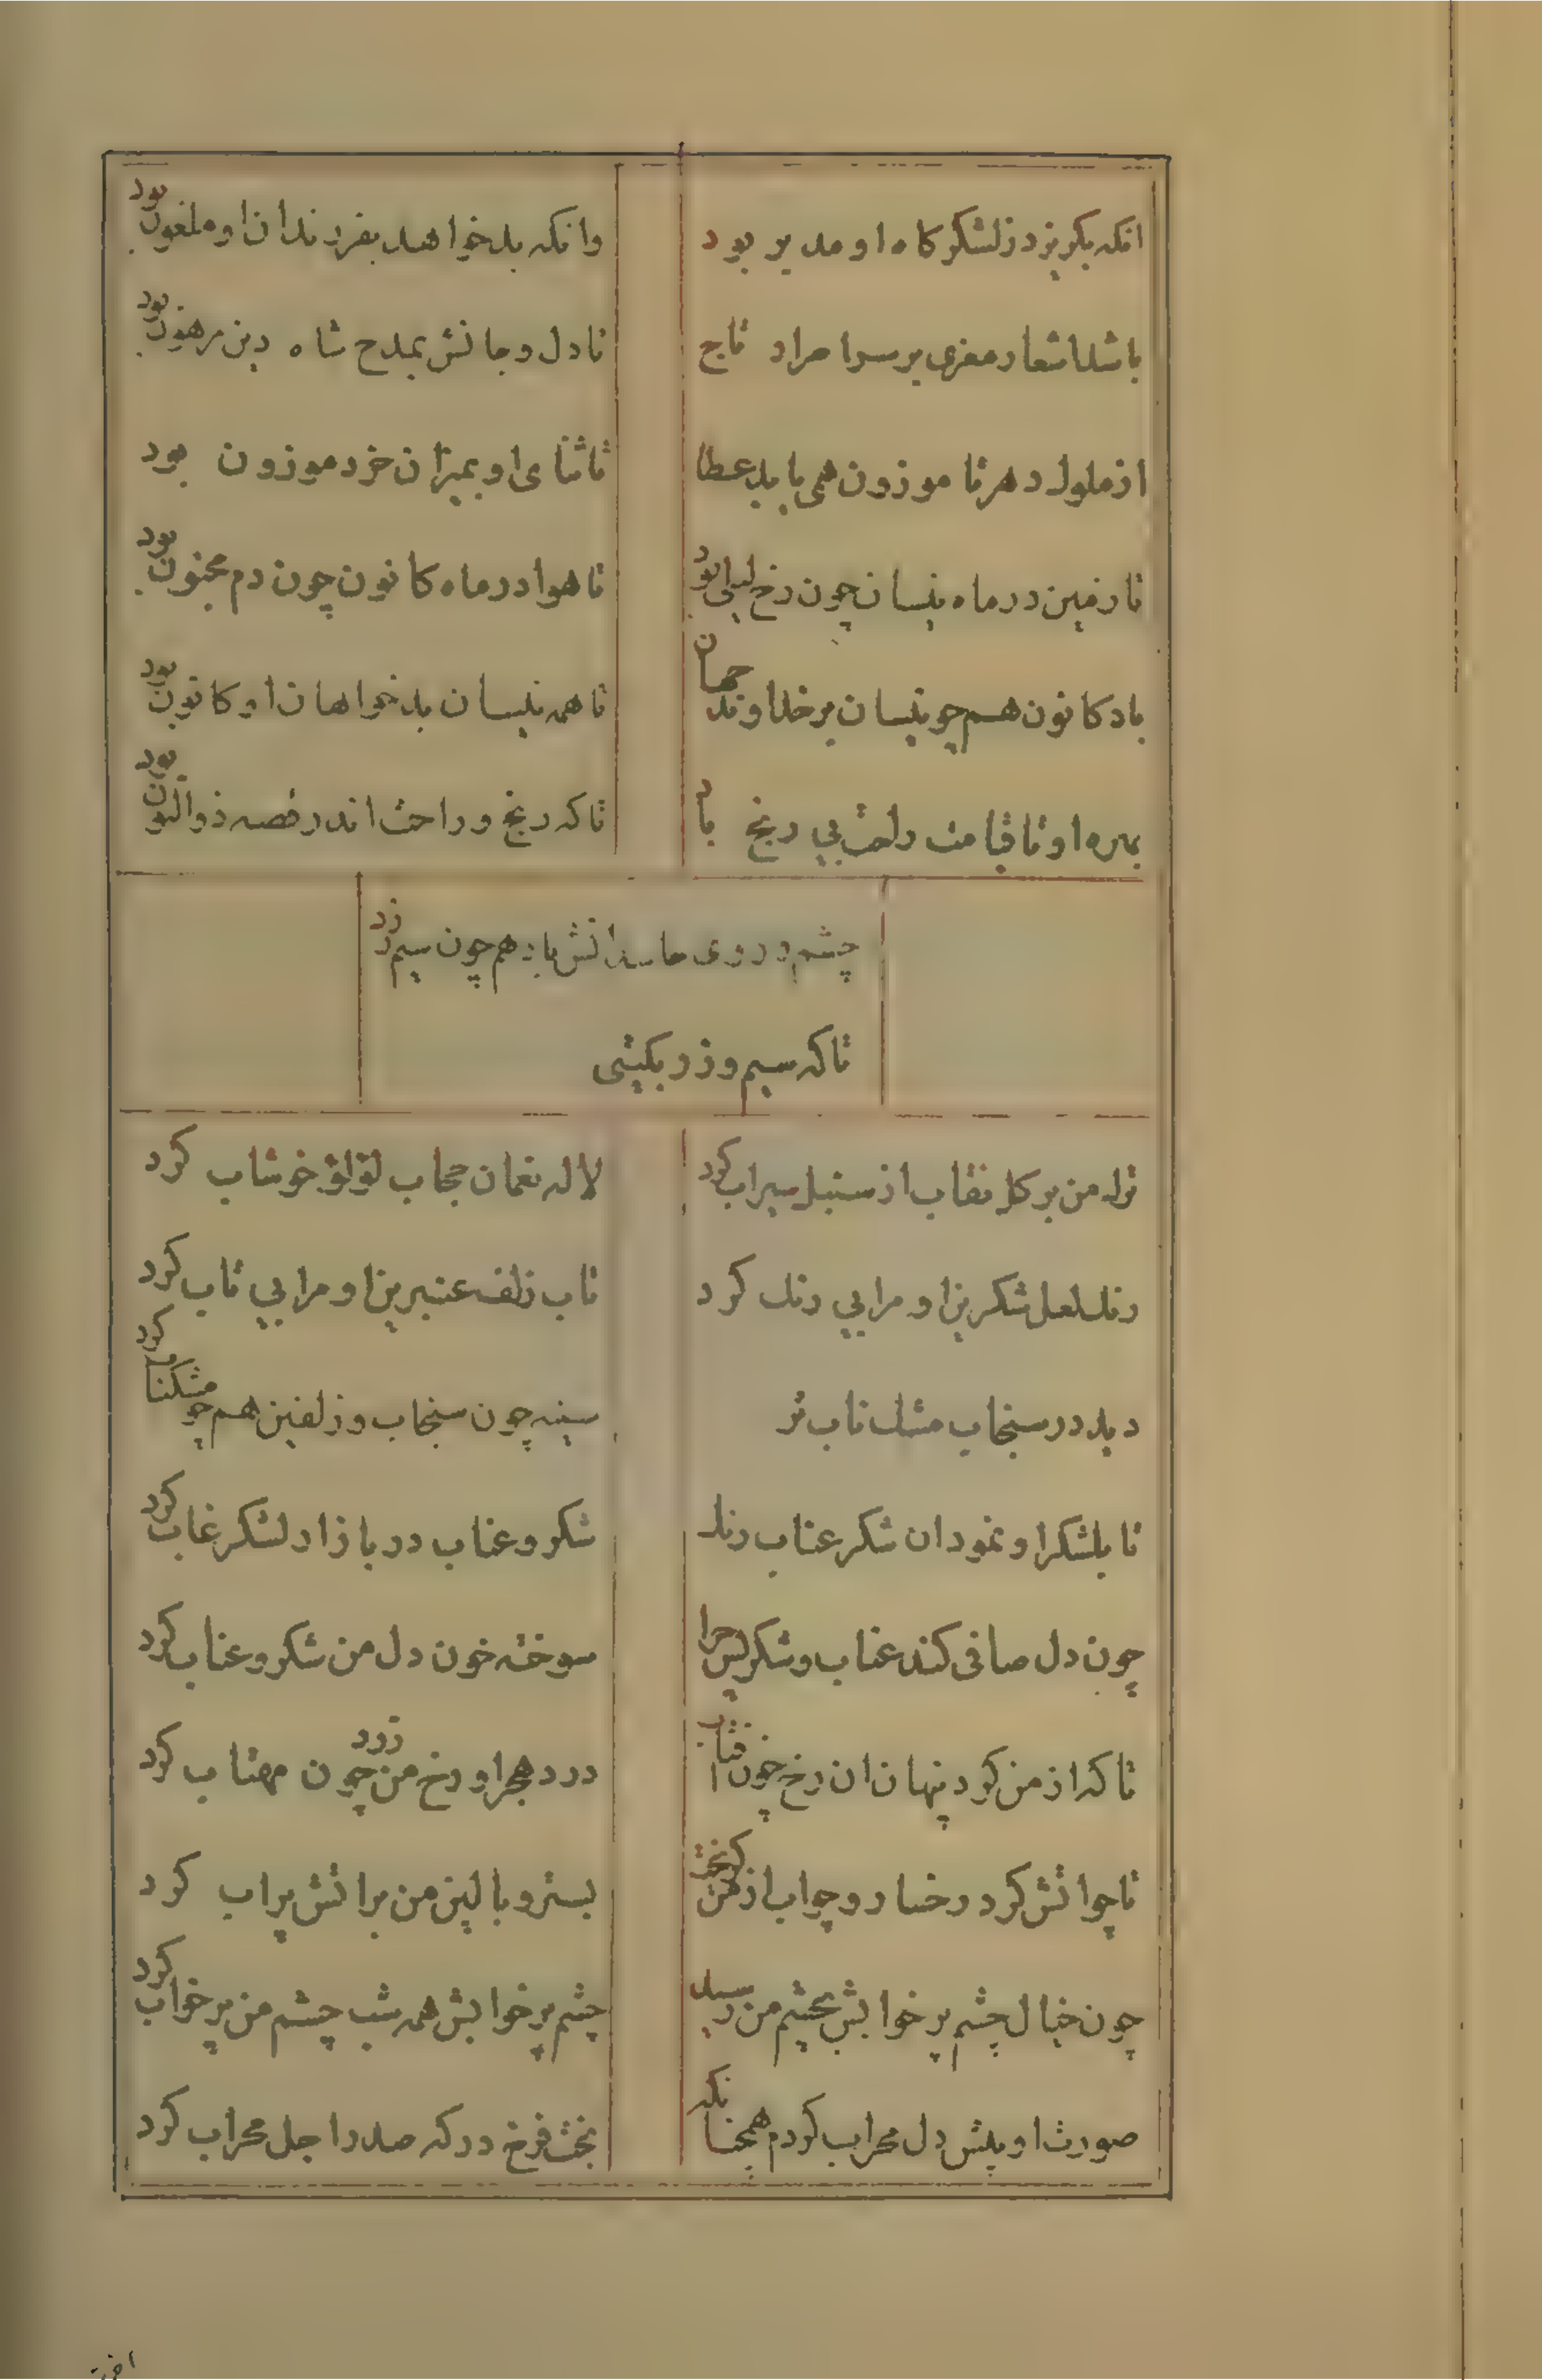 انکه بکریزد ز لشکر کاه او مدبر بود
وانکه بد خواهد بفرزندان او ملعون بود
باشد اشعار معزی بر سر احرار تاج
تا دل و جانش بمدح شاه دین مرهون بود
از ملوک دهر تا موزون همی یابد عطا
تا ثنای او بمیزان خرد موزون بود
تا زمین در ماه نیسان چون رخ لیلی بود
تا هوا در ماه کانون چون دم مجنون بود
باد کانون هم چو نیسان بر خداوند جهان
تا همه نیسان بد خواهان او کانون بود
بهره او تا قیامت راحت بی رنج باد
تا که رنج و راحت اندر قصه ذوالنون بود
چشم و روی حاسدانش باد هم چون سیم زرد
تا که سیم و زر بکیتی
ترک من بر کل نقاب از سنبل سیراب کرد
لاله نعمان حجاب لؤلؤ خوشاب کرد
رنک لعل شکرین او مرا بی رنک کرد
تاب زلف عنبرین او مرا بی تاب کرد
دید در سنجاب مشک ناب تر
سینه چون سنجاب و زلفین هم چو مشکناب کرد
تا بلشکر او نمود ان شکر عناب رنک
شکر و عناب در بازار لشکر غاب کرد
چون دل صافی کند عناب و شکر پس چرا
سوخته خون دل من شکر و عناب کرد
تا که از من کرد پنهان ان رخ چون افتاب
درد هجر او رخ من زرد چون مهتاب کرد
تا چو اتش کرد رخسار و چو اب از من کریخت
بستر و بالین من بر اتش پر اب کرد
چون خیال چشم پر خوابش بچشم من رسید
چشم پر خوابش همه شب چشم من پر خواب کرد
صورت او پیش دل محراب کردم همچنانکه
بخت فرخ درکه صدر اجل محراب کرد